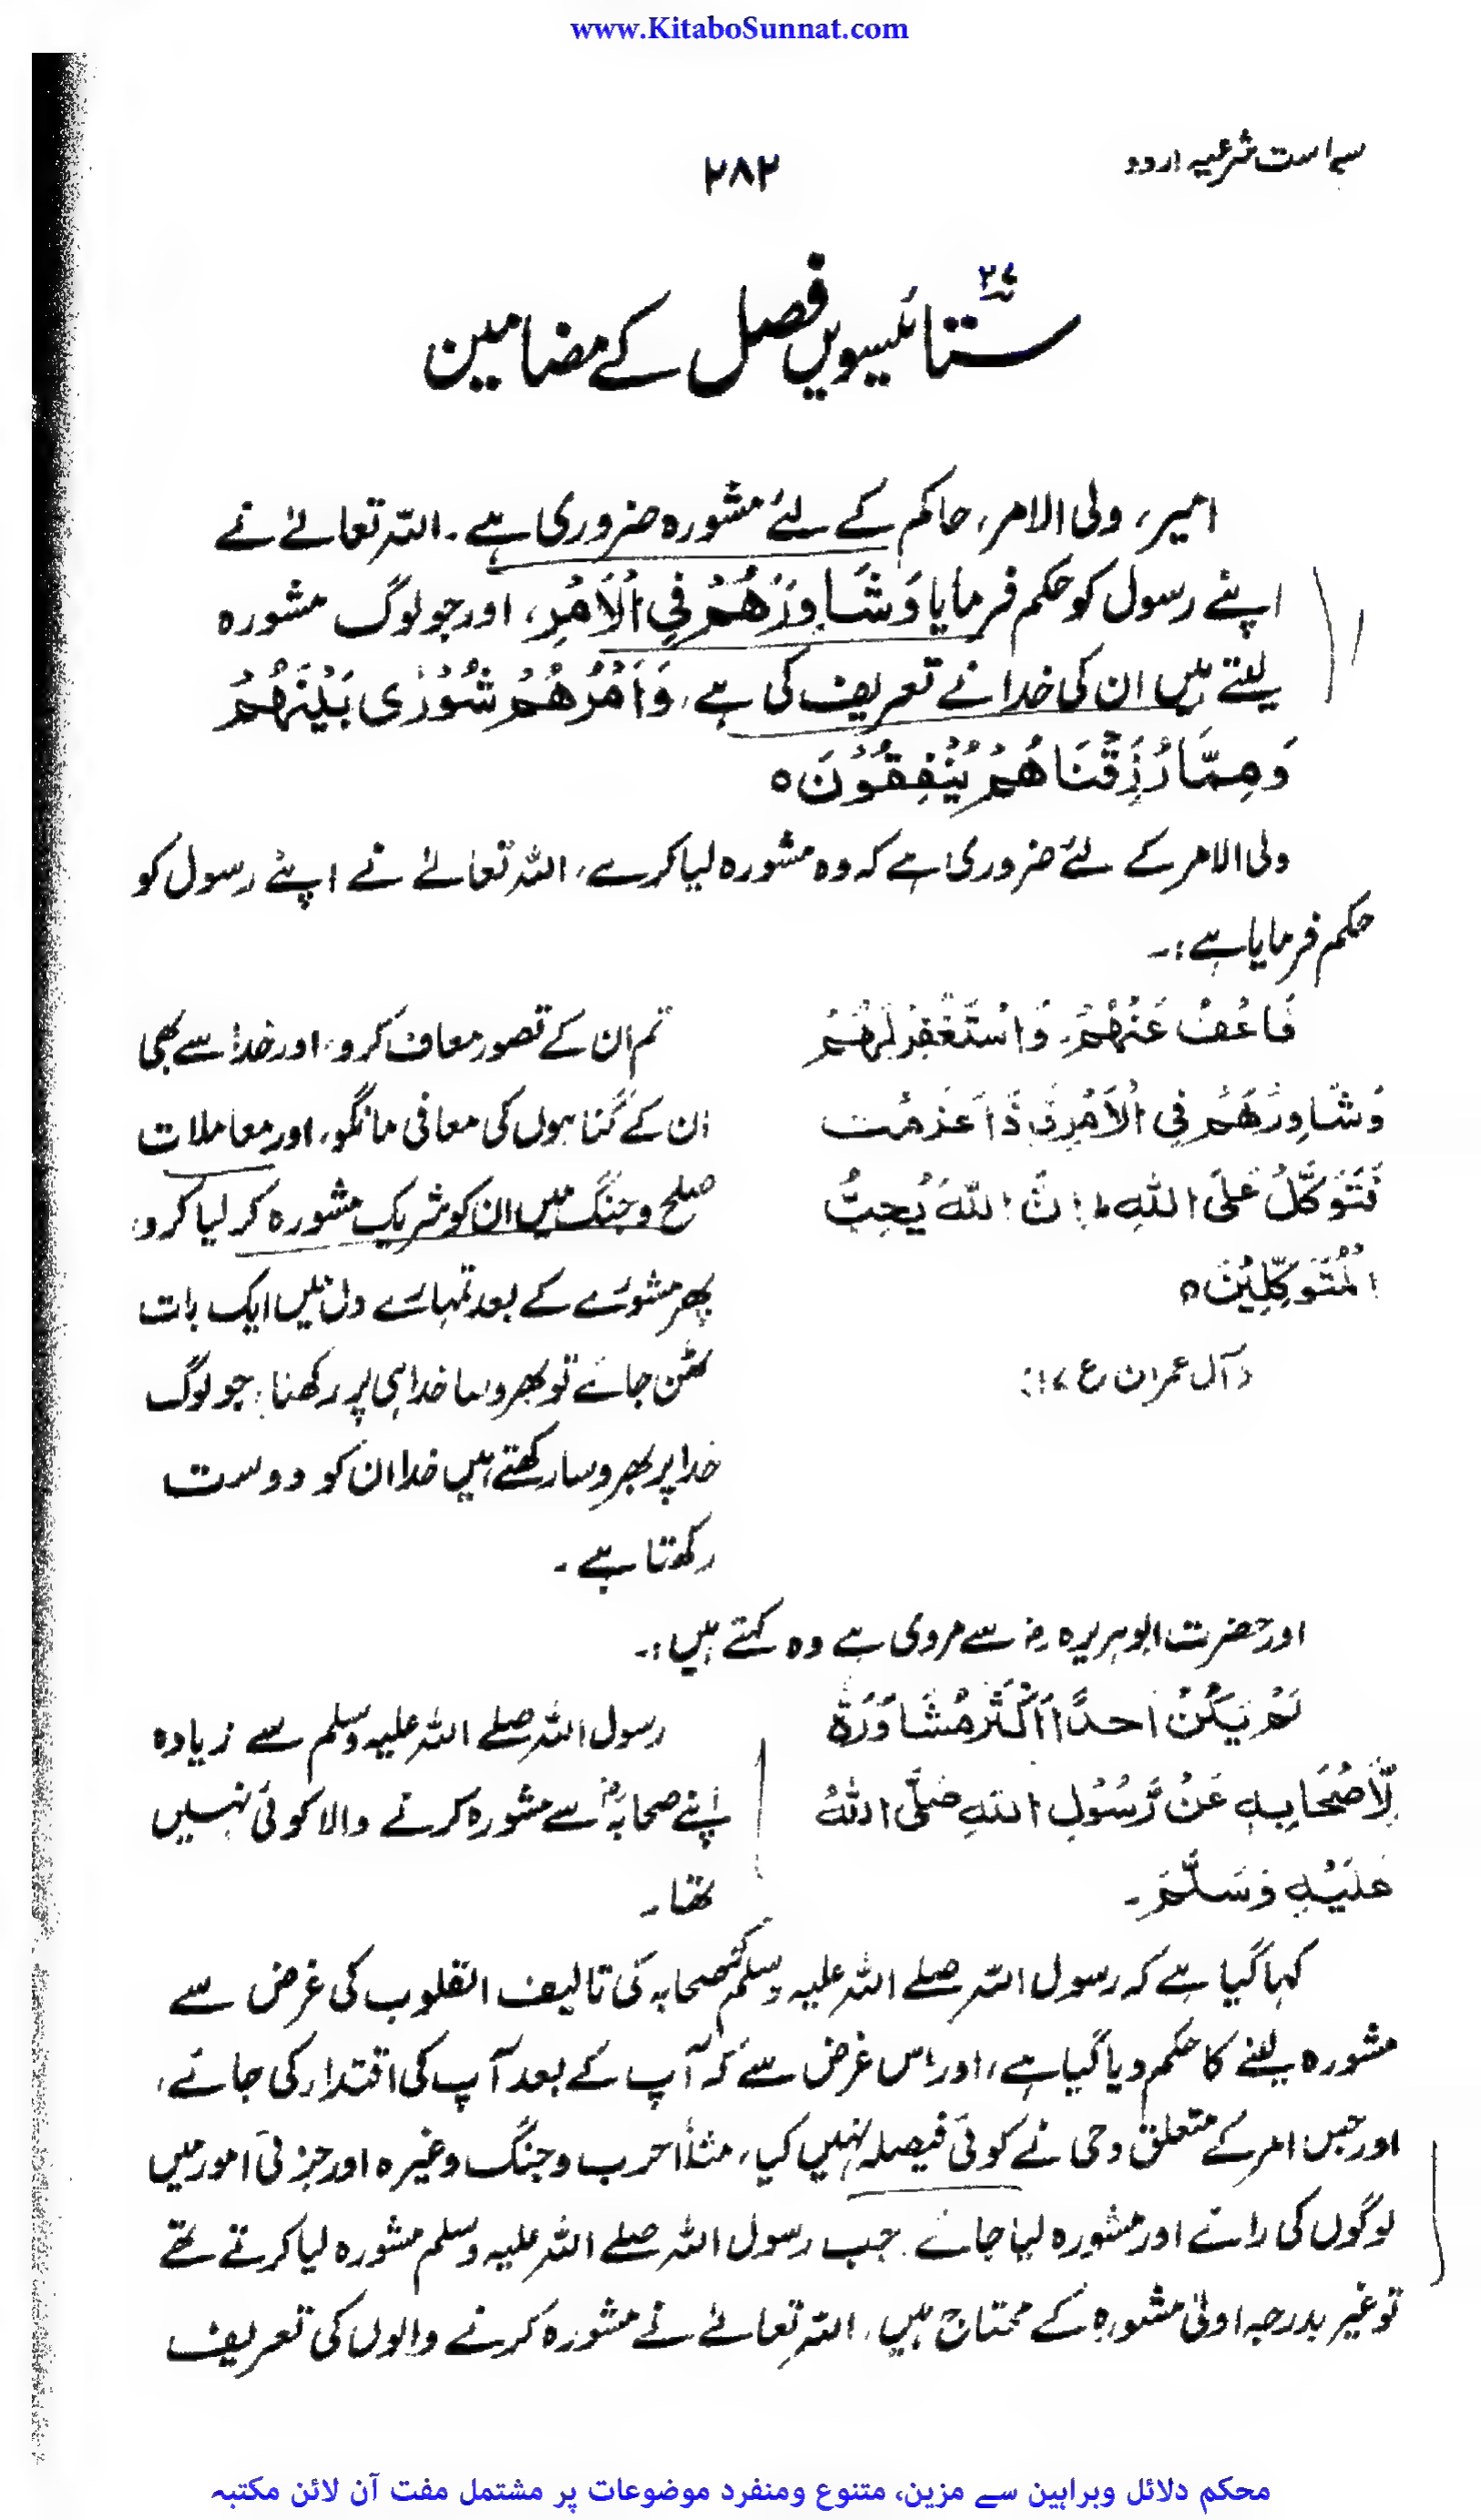 www.KitaboSunnat.com
سیاست شرعیہ اردو
۲۸۲
۲۷
ستائیسویں فصل کے مضامین
امیر، ولی الامر، حاکم کے لئے مشورہ ضروری ہے۔ اللہ تعالےٰ نے
اپنے رسول کو حکم فرمایا وَشَاوِرْهُمْ فِي الْاَمْرِ، اور جو لوگ مشورہ
لیتے ہیں ان کی خدا نے تعریف کی ہے، وَاَمْرُهُمْ شُوْرٰى بَيْنَهُمْ
وَمِمَّا رَزَقْنَاهُمْ يُنْفِقُوْنَ ه
ولی الامر کے لئے ضروری ہے کہ وہ مشورہ لیا کرے، اللہ تعالےٰ نے اپنے رسول کو
حکم فرمایا ہے:۔
فَاعْفُ عَنْهُمْ وَاسْتَغْفِرْ لَهُمْ
وَشَاوِرْهُمْ فِي الْاَمْرِ فَاِذَا عَزَمْتَ
فَتَوَكَّلْ عَلَى اللهِ ط اِنَّ اللهَ يُحِبُّ
الْمُتَوَكِّلِيْنَ ه
(آل عمران ع ۱۷)
تم ان کے قصور معاف کرو، اور خدا سے بھی
ان کے گناہوں کی معافی مانگو، اور معاملات
صلح و جنگ میں ان کو شریک مشورہ کر لیا کرو،
پھر مشورے کے بعد تمہارے دل میں ایک بات
ٹھن جائے تو بھروسا خدا ہی پر رکھنا، جو لوگ
خدا پر بھروسا رکھتے ہیں خدا ان کو دوست
رکھتا ہے۔
اور حضرت ابوہریرہ رضؓ سے مروی ہے وہ کہتے ہیں:۔
لَمْ يَكُنْ اَحدًا اَكْثَرَ مُشَاوَرَةً
لِاَصْحَابِهٖ عَنْ رَّسُوْلِ اللهِ صَلَّى اللهُ
عَلَيْهِ وَسَلَّمَ۔
رسول اللہ صلے اللہ علیہ وسلم سے زیادہ
اپنے صحابہؓ سے مشورہ کرنے والا کوئی نہیں
تھا۔
کہا گیا ہے کہ رسول اللہ صلے اللہ علیہ وسلم کو صحابہ کی تالیف القلوب کی غرض سے
مشورہ لینے کا حکم دیا گیا ہے، اور اس غرض سے کہ آپ کے بعد آپ کی اقتداء کی جائے،
اور جس امر کے متعلق وحی نے کوئی فیصلہ نہیں کیا، مثلاً حرب و جنگ وغیرہ اور جزئی امور میں
لوگوں کی رائے اور مشورہ لیا جائے۔ جب رسول اللہ صلے اللہ علیہ وسلم مشورہ لیا کرتے تھے
تو غیر بدرجہ اولیٰ مشورہ کے محتاج ہیں، اللہ تعالےٰ نے مشورہ کرنے والوں کی تعریف
محکم دلائل وبراہین سے مزین، متنوع ومنفرد موضوعات پر مشتمل مفت آن لائن مکتبہ